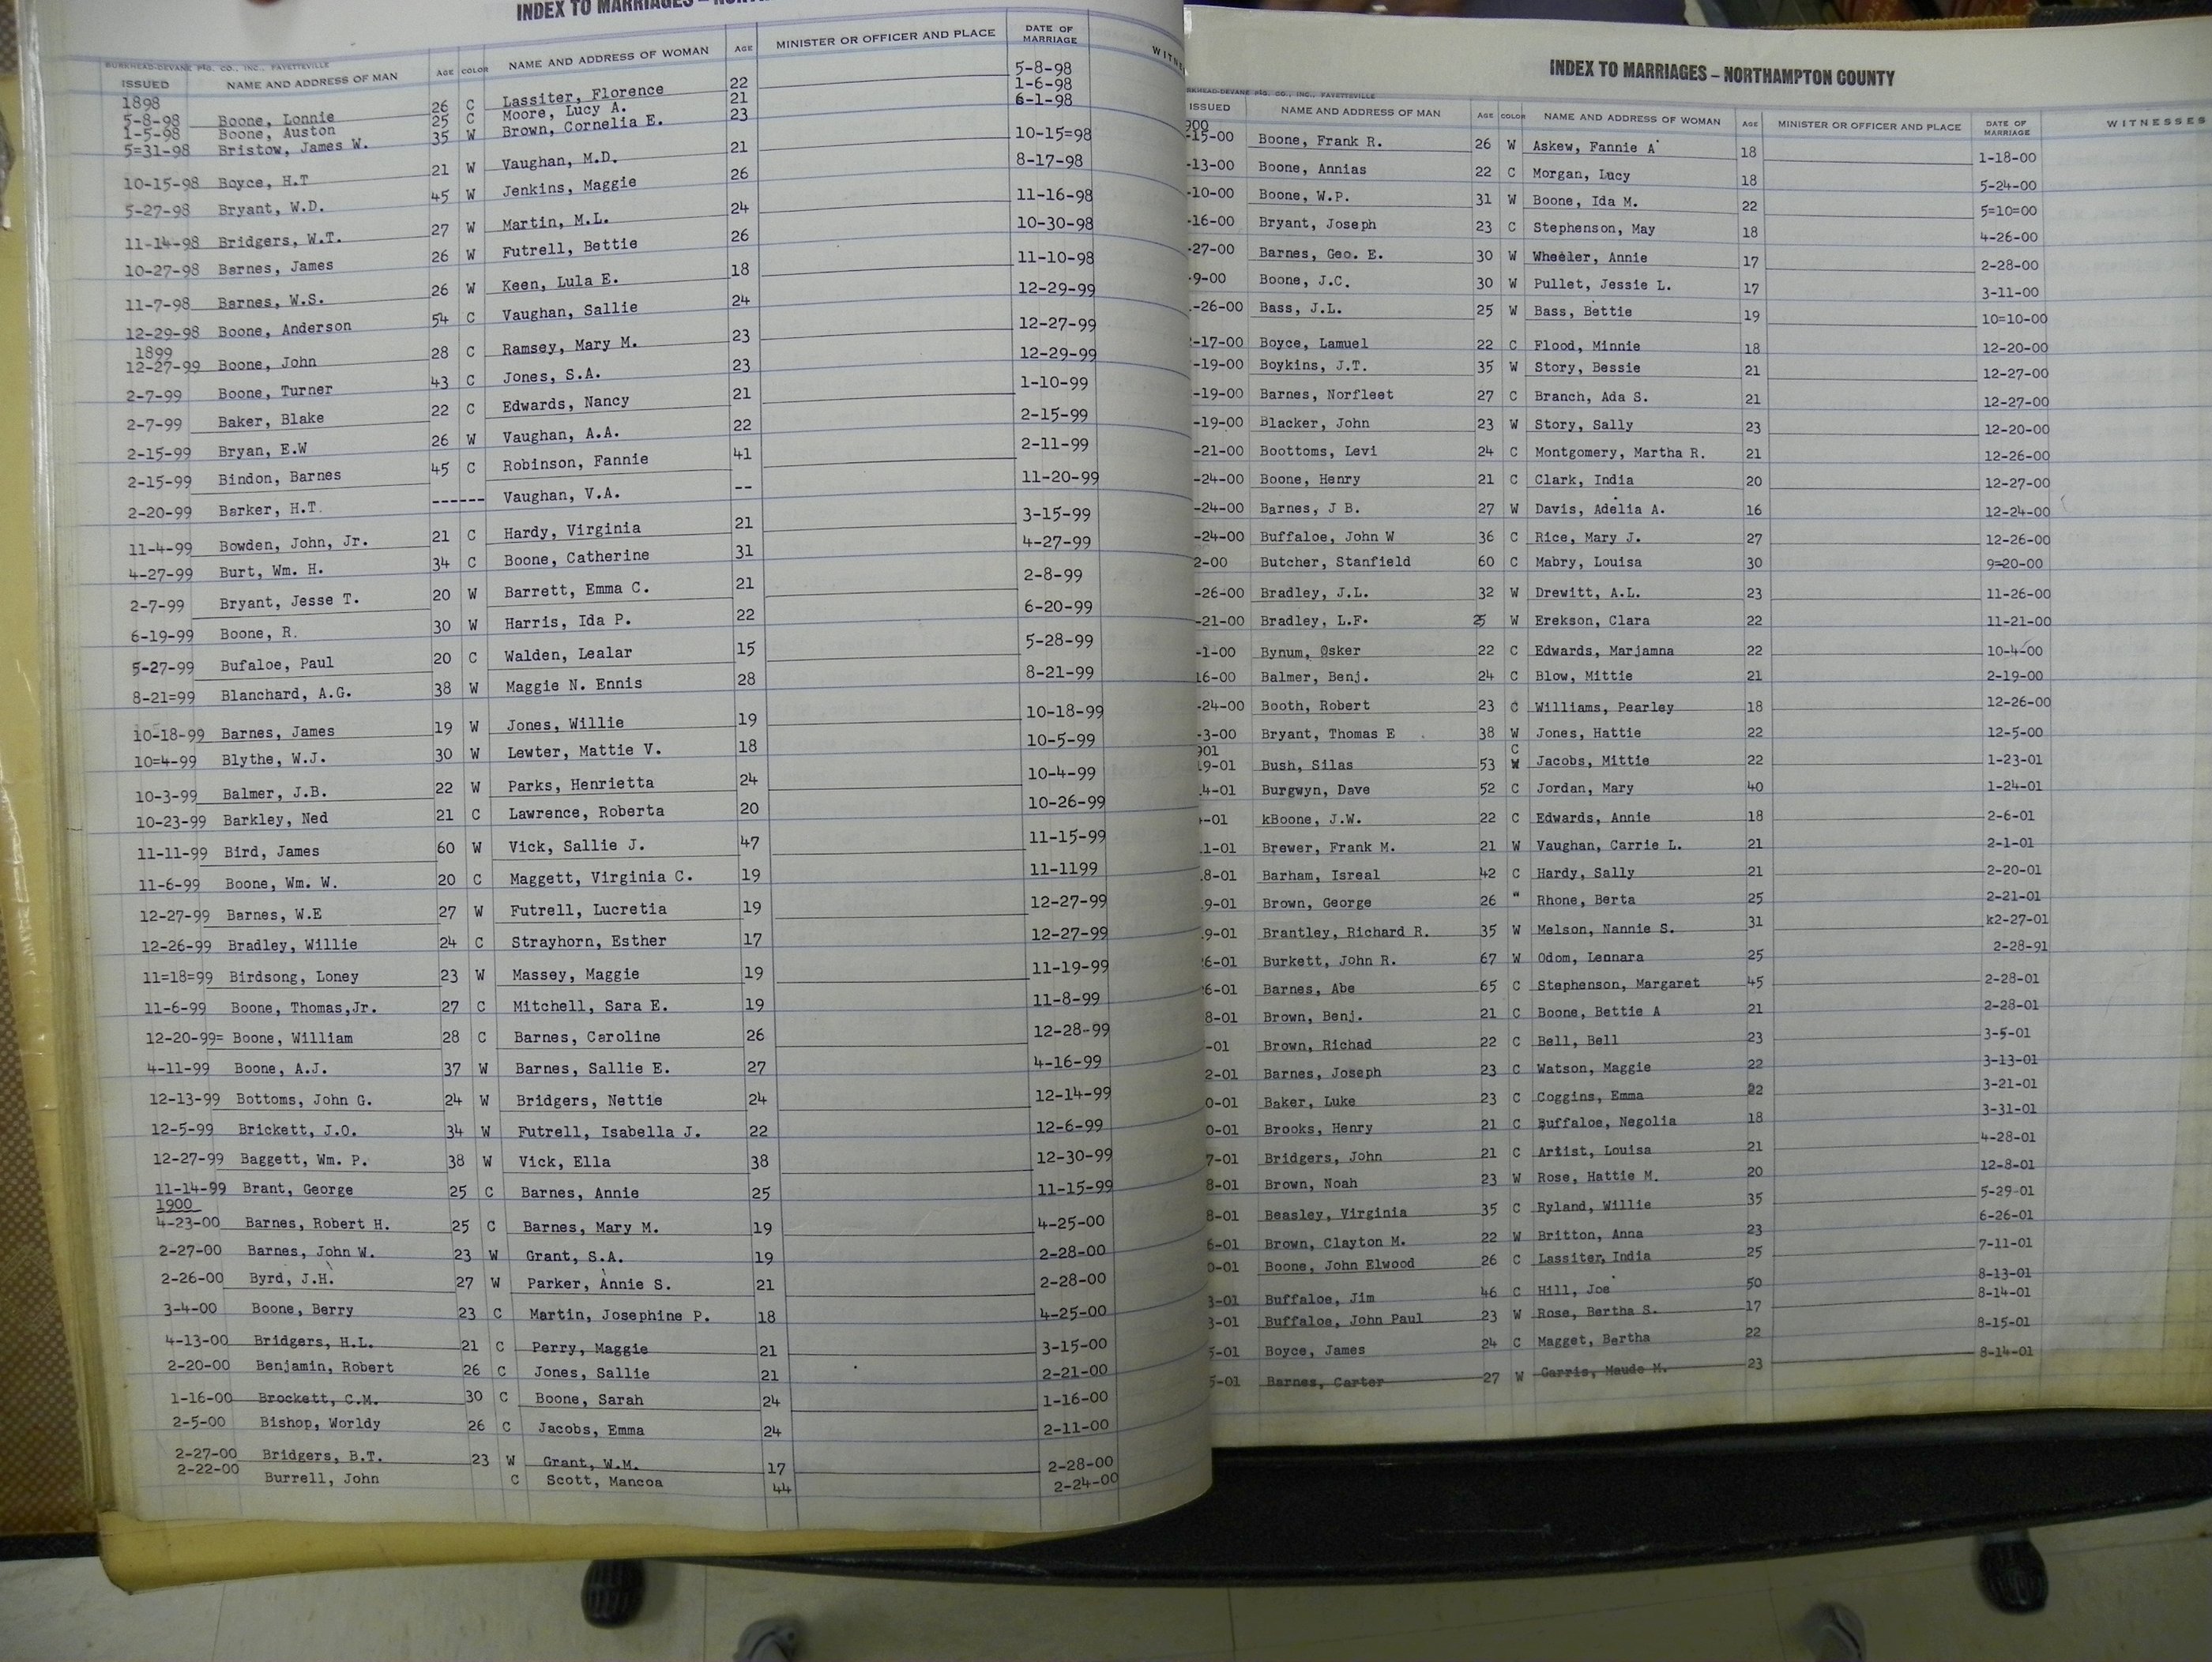 INDEX TO MARRIAGES –
BURKHEAD-DEVANE PTG. CO., INC., FAYETTEVILLE
ISSUED NAME AND ADDRESS OF MAN AGE COLOR NAME AND ADDRESS OF WOMAN AGE MINISTER OR OFFICER AND PLACE DATE OF MARRIAGE
1898
5-8-98 Boone, Lonnie 26 C Lassiter, Florence 22 5-8-98
1-5-98 Boone, Auston 25 C Moore, Lucy A. 21 1-6-98
5=31-98 Bristow, James W. 35 W Brown, Cornelia E. 23 6-1-98
10-15-98 Boyce, H.T 21 W Vaughan, M.D. 21 10-15=98
5-27-98 Bryant, W.D. 45 W Jenkins, Maggie 26 8-17-98
11-14-98 Bridgers, W.T. 27 W Martin, M.L. 24 11-16-98
10-27-98 Barnes, James 26 W Futrell, Bettie 26 10-30-98
11-7-98 Barnes, W.S. 26 W Keen, Lula E. 18 11-10-98
12-29-98 Boone, Anderson 54 C Vaughan, Sallie 24 12-29-99
1899
12-27-99 Boone, John 28 C Ramsey, Mary M. 23 12-27-99
2-7-99 Boone, Turner 43 C Jones, S.A. 23 12-29-99
2-7-99 Baker, Blake 22 C Edwards, Nancy 21 1-10-99
2-15-99 Bryan, E.W 26 W Vaughan, A.A. 22 2-15-99
2-15-99 Bindon, Barnes 45 C Robinson, Fannie 41 2-11-99
2-20-99 Barker, H.T. ------ Vaughan, V.A. -- 11-20-99
11-4-99 Bowden, John, Jr. 21 C Hardy, Virginia 21 3-15-99
4-27-99 Burt, Wm. H. 34 C Boone, Catherine 31 4-27-99
2-7-99 Bryant, Jesse T. 20 W Barrett, Emma C. 21 2-8-99
6-19-99 Boone, R. 30 W Harris, Ida P. 22 6-20-99
5-27-99 Bufaloe, Paul 20 C Walden, Lealar 15 5-28-99
8-21=99 Blanchard, A.G. 38 W Maggie N. Ennis 28 8-21-99
10-18-99 Barnes, James 19 W Jones, Willie 19 10-18-99
10=4-99 Blythe, W.J. 30 W Lewter, Mattie V. 18 10-5-99
10-3-99 Balmer, J.B. 22 W Parks, Henrietta 24 10-4-99
10-23-99 Barkley, Ned 21 C Lawrence, Roberta 20 10-26-99
11-11-99 Bird, James 60 W Vick, Sallie J. 47 11-15-99
11-6-99 Boone, Wm. W. 20 C Maggett, Virginia C. 19 11-1199
12-27-99 Barnes, W.E 27 W Futrell, Lucretia 19 12-27-99
12-26-99 Bradley, Willie 24 C Strayhorn, Esther 17 12-27-99
11=18=99 Birdsong, Loney 23 W Massey, Maggie 19 11-19-99
11-6-99 Boone, Thomas,Jr. 27 C Mitchell, Sara E. 19 11-8-99
12-20-99= Boone, William 28 C Barnes, Caroline 26 12-28-99
4-11-99 Boone, A.J. 37 W Barnes, Sallie E. 27 4-16-99
12-13-99 Bottoms, John G. 24 W Bridgers, Nettie 24 12-14-99
12-5-99 Brickett, J.O. 34 W Futrell, Isabella J. 22 12-6-99
12-27-99 Baggett, Wm. P. 38 W Vick, Ella 38 12-30-99
11-14-99 Brant, George 25 C Barnes, Annie 25 11-15-99
1900
4-23-00 Barnes, Robert H. 25 C Barnes, Mary M. 19 4-25-00
2-27-00 Barnes, John W. 23 W Grant, S.A. 19 2-28-00
2-26-00 Byrd, J.H. 27 W Parker, Annie S. 21 2-28-00
3-4-00 Boone, Berry 23 C Martin, Josephine P. 18 4-25-00
4-13-00 Bridgers, H.L. 21 C Perry, Maggie 21 3-15-00
2-20-00 Benjamin, Robert 26 C Jones, Sallie 21 2-21-00
1-16-00 Brockett, C.M. 30 C Boone, Sarah 24 1-16-00
2-5-00 Bishop, Worldy 26 C Jacobs, Emma 24 2-11-00
2-27-00 Bridgers, B.T. 23 W Grant, W.M. 17 2-28-00
2-22-00 Burrell, John C Scott, Mancoa 44 2-24-00
INDEX TO MARRIAGES – NORTHAMPTON COUNTY
PTG. CO., INC., FAYETTEVILLE
ISSUED NAME AND ADDRESS OF MAN AGE COLOR NAME AND ADDRESS OF WOMAN AGE MINISTER OR OFFICER AND PLACE DATE OF MARRIAGE WITNESSES
900
-15-00 Boone, Frank R. 26 W Askew, Fannie A 18 1-18-00
-13-00 Boone, Annias 22 C Morgan, Lucy 18 5-24-00
-10-00 Boone, W.P. 31 W Boone, Ida M. 22 5=10=00
-16-00 Bryant, Joseph 23 C Stephenson, May 18 4-26-00
-27-00 Barnes, Geo. E. 30 W Wheeler, Annie 17 2-28-00
-9-00 Boone, J.C. 30 W Pullet, Jessie L. 17 3-11-00
-26-00 Bass, J.L. 25 W Bass, Bettie 19 10=10-00
-17-00 Boyce, Lamuel 22 C Flood, Minnie 18 12-20-00
-19-00 Boykins, J.T. 35 W Story, Bessie 21 12-27-00
-19-00 Barnes, Norfleet 27 C Branch, Ada S. 21 12-27-00
-19-00 Blacker, John 23 W Story, Sally 23 12-20-00
-21-00 Boottoms, Levi 24 C Montgomery, Martha R. 21 12-26-00
-24-00 Boone, Henry 21 C Clark, India 20 12-27-00
-24-00 Barnes, J B. 27 W Davis, Adelia A. 16 12-24-00
-24-00 Buffaloe, John W 36 C Rice, Mary J. 27 12-26-00
2-00 Butcher, Stanfield 60 C Mabry, Louisa 30 9=20-00
-26-00 Bradley, J.L. 32 W Drewitt, A.L. 23 11-26-00
-21-00 Bradley, L.F. 25 W Erekson, Clara 22 11-21-00
-1-00 Bynum, Osker 22 C Edwards, Marjamna 22 10-4-00
16-00 Balmer, Benj. 24 C Blow, Mittie 21 2-19-00
-24-00 Booth, Robert 23 C Williams, Pearley 18 12-26-00
-3-00 Bryant, Thomas E 38 W Jones, Hattie 22 12-5-00
901 C
19-01 Bush, Silas 53 W Jacobs, Mittie 22 1-23-01
4-01 Burgwyn, Dave 52 C Jordan, Mary 40 1-24-01
-01 kBoone, J.W. 22 C Edwards, Annie 18 2-6-01
1-01 Brewer, Frank M. 21 W Vaughan, Carrie L. 21 2-1-01
8-01 Barham, Isreal 42 C Hardy, Sally 21 2-20-01
9-01 Brown, George 26 " Rhone, Berta 25 2-21-01
9-01 Brantley, Richard R. 35 W Melson, Nannie S. 31 k2-27-01
6-01 Burkett, John R. 67 W Odom, Lennara 25 2-28-91
6-01 Barnes, Abe 65 C Stephenson, Margaret 45 2-28-01
8-01 Brown, Benj. 21 C Boone, Bettie A 21 2-28-01
-01 Brown, Richad 22 C Bell, Bell 23 3-5-01
2-01 Barnes, Joseph 23 C Watson, Maggie 22 3-13-01
0-01 Baker, Luke 23 C Coggins, Emma 22 3-21-01
0-01 Brooks, Henry 21 C Buffaloe, Negolia 18 3-31-01
7-01 Bridgers, John 21 C Artist, Louisa 21 4-28-01
8-01 Brown, Noah 23 W Rose, Hattie M. 20 12-8-01
8-01 Beasley, Virginia 35 C Ryland, Willie 35 5-29-01
6-01 Brown, Clayton M. 22 W Britton, Anna 23 6-26-01
0-01 Boone, John Elwood 26 C Lassiter, India 25 7-11-01
3-01 Buffaloe, Jim 46 C Hill, Joe 50 8-13-01
3-01 Buffaloe, John Paul 23 W Rose, Bertha S. 17 8-14-01
5-01 Boyce, James 24 C Magget, Bertha 22 8-15-01
5-01 Barnes, Carter 27 W Garris, Maude M. 23 8-14-01